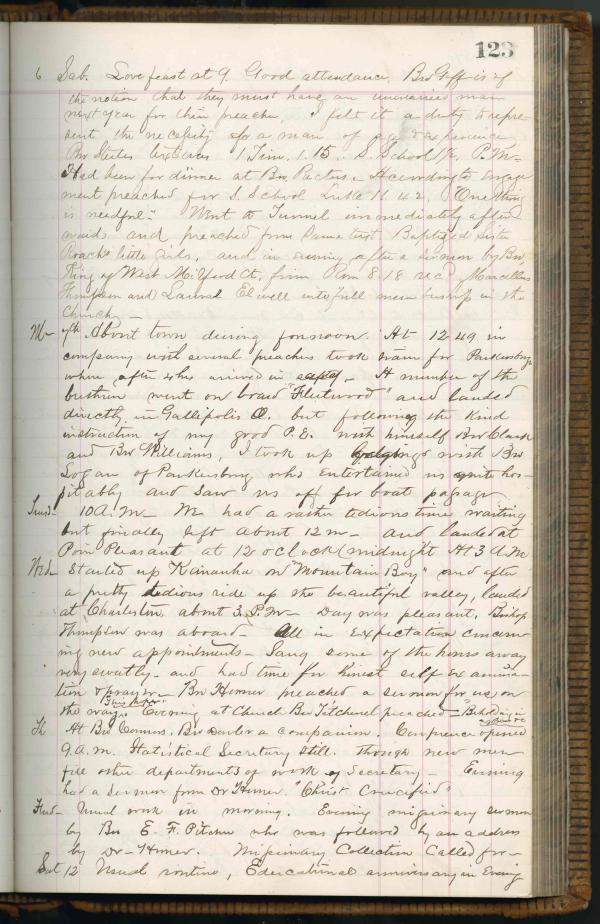 123
6 Sab. Love feast at 9. Good attendance. Bro Goff is of
the notion that they must have an unmarried man
next year for their preacher, I felt it a duty to repre-
sent the necessity for a man of age & experience
Bro Steeles text was 1 Tim. 1.15. S. School 1½ P.M.
Had been for dinner at Bro. According to engage
ment preached for S. School Luke 10.42. "One thing
is needful." Went to Tunnel immediately after
ward and preached from same text. Baptized Sister
Roach's little girls, and in evening after a sermon by Bro.
King of West Milford Ct, from Rom 8.18 rec'd Marcellus
Thompson and Laura Elwell into full membership in the
Church.
M— 7th About town during forenoon. At 12.49 in
company with several preachers took train for Parkersburg
where after 4 hrs arrived in safety. A number of the
brethren went on board "Fleetwood" and landed
directly in Gallipolis O. but following the kind
instruction of my good P.E. with himself Bro Clark
and Bro Williams, I took up lodgings with Bro
Logan of Parkersburg who entertained us quite hos-
pitably and saw us off for boat passage.
Tues— 10 A.M. We had a rather tedious time waiting
but finally left about 12 m— and landed at
Point Pleasant at 12 o'clock (midnight At 3 A.M.
Wed— started up Kanawha on "Mountain Boy" and after
a pretty tedious ride up the beautiful valley, landed
at Charleston about 3. P.M— Day was pleasant. Bishop
Thompson was aboard— All in expectation concern-
ing new appointments— Sang some of the hours away
very sweetly— and had time for honest self examina-
tion & prayer— Bro Hirner preached a sermon for us on
the way. Evening at Church Bro Fitchenel preached— "Behold
Th At Bro. Bro a companion. Conference opened
9. a.m. Statistical Secretary still. Though new men
fill other departments of work of Secretary— Evening
had a sermon from Dr Hirner. "Christ Crucified"
Frid— Usual work in morning. Evening missionary sermon
by Bro E. F. Pitcher who was followed by an address
by Dr— Hirner. Missionary Collection Called for—
Sat 12 Usual routine, Educational anniversary in Evening